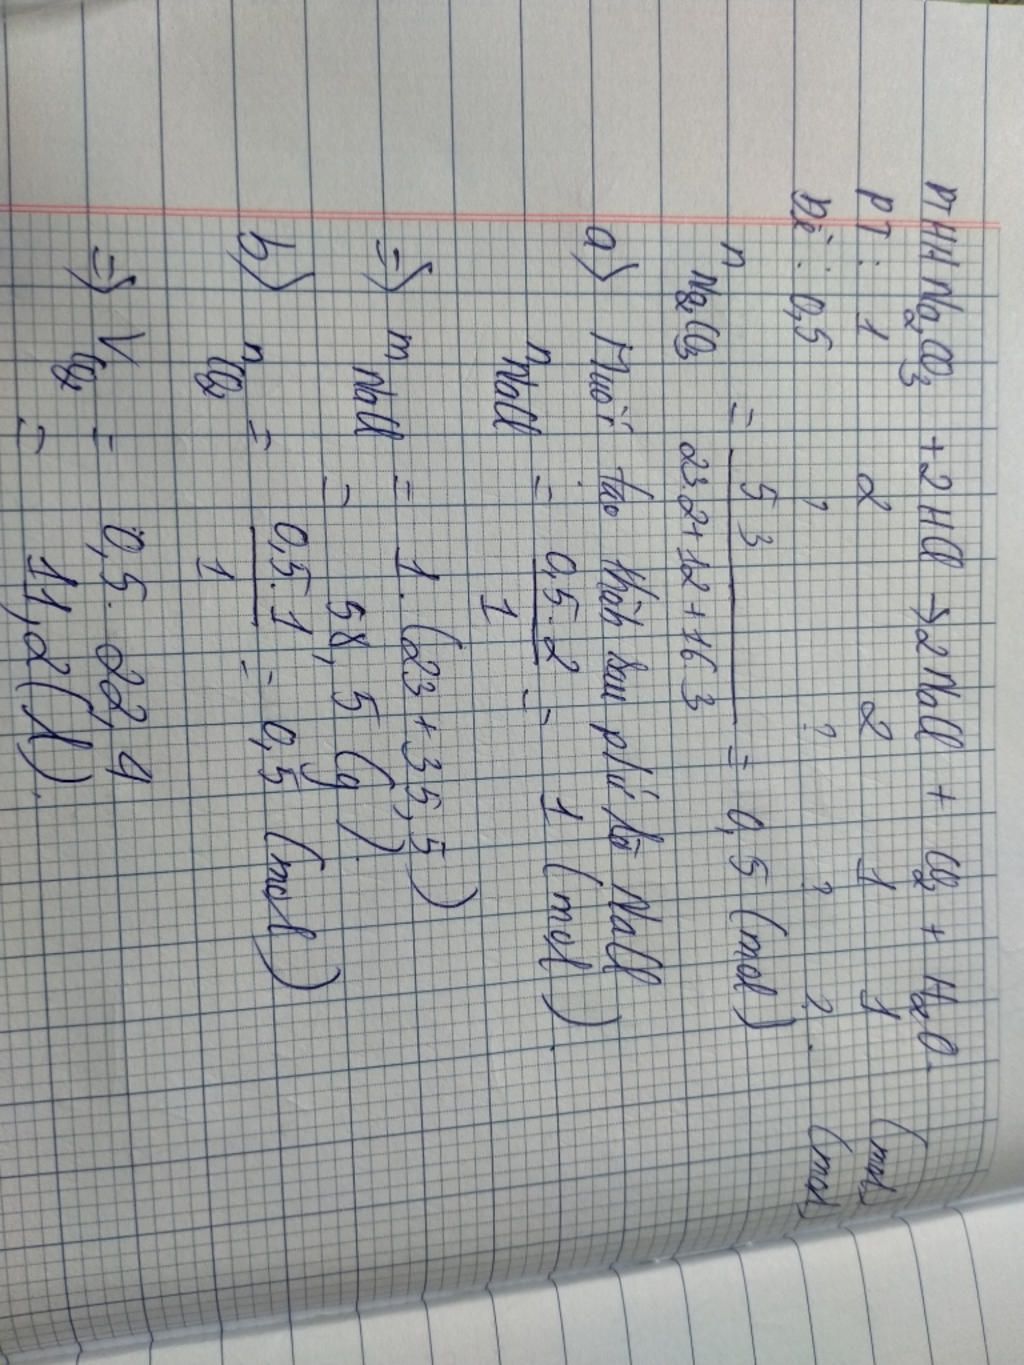 PTHH Na2CO3 + 2HCl → 2NaCl + CO2 + H2O.
PT: 1 2 2 1 1 (mol)
Đề: 0,5 ? ? ? ?. (mol)
nNa2CO3 = 53 / 23.2+12+16.3 = 0,5 (mol)
a) Muối tạo thành sau phứ là NaCl
nNaCl = 0,5.2 / 1 = 1 (mol).
=> mNaCl = 1. (23+35,5)
= 58,5 (g).
b) nCO2 = 0,5.1 / 1 = 0,5 (mol)
=> VCO2 = 0,5. 22,4
= 11,2 (l).